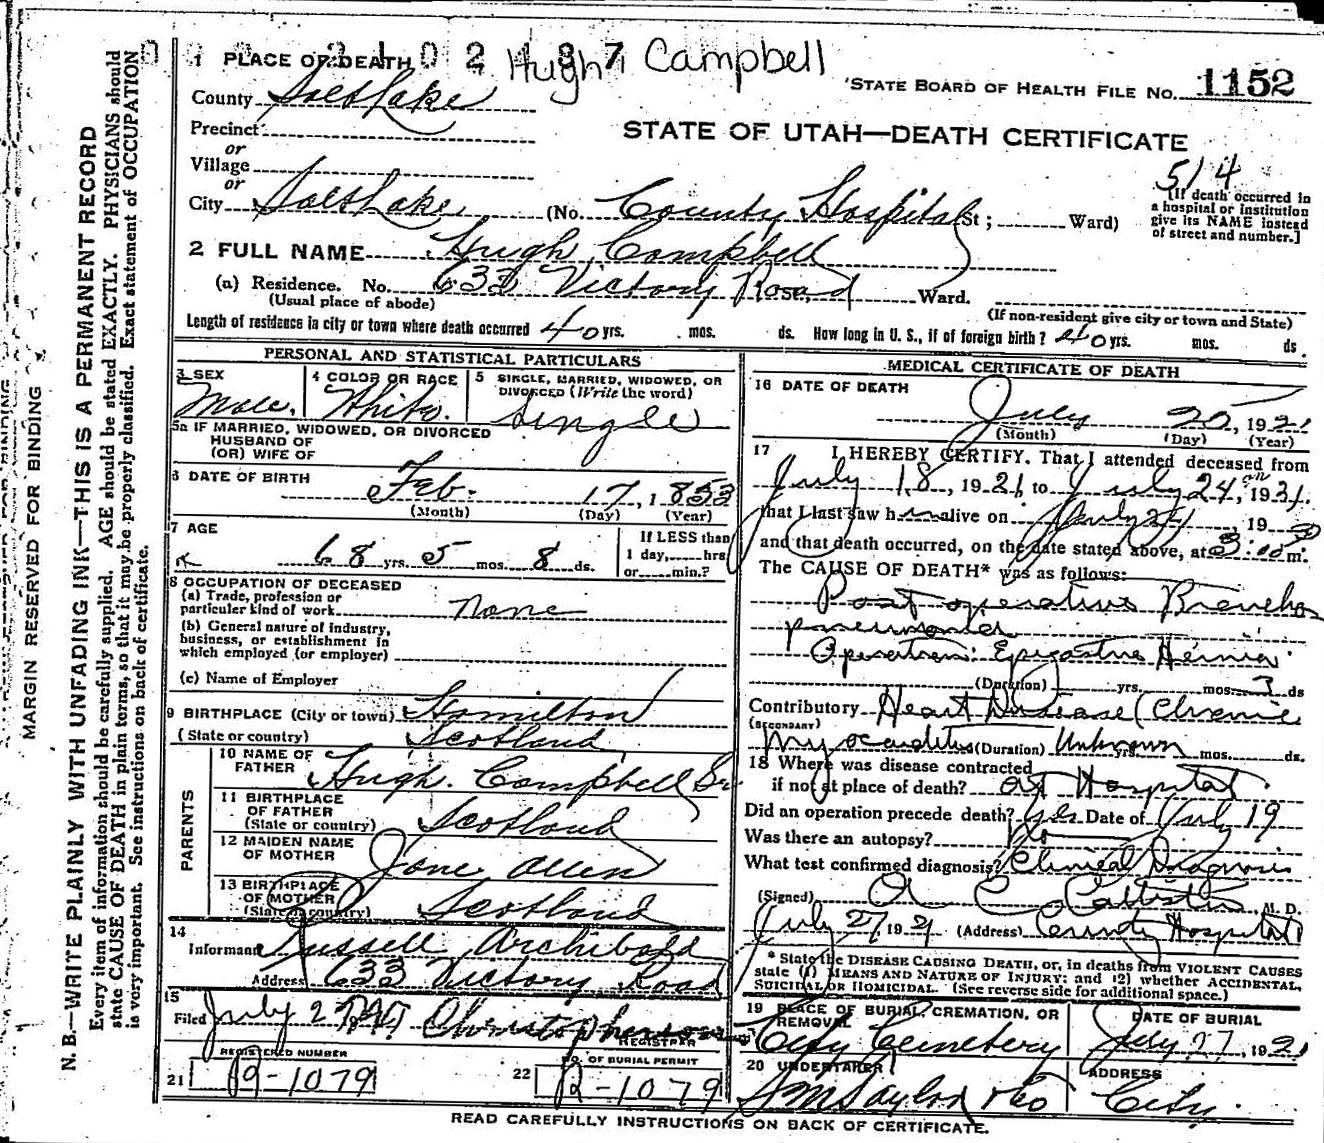 1 PLACE OF DEATH
Hugh Campbell
County Salt Lake
STATE BOARD OF HEALTH FILE NO. 1152
Precinct
or
STATE OF UTAH—DEATH CERTIFICATE
Village
or
514
City Salt Lake (No. County Hospital St; Ward)
[If death occurred in
a hospital or institution
give its NAME instead
of street and number.]
2 FULL NAME Hugh Campbell
(a) Residence. No. 633 Victory Road Ward.
(Usual place of abode)
(If non-resident give city or town and State)
Length of residence in city or town where death occurred 40 yrs. mos. ds. How long in U. S., if of foreign birth? 40 yrs. mos. ds.
PERSONAL AND STATISTICAL PARTICULARS
3 SEX
Male.
4 COLOR OR RACE
White.
5 SINGLE, MARRIED, WIDOWED, OR
DIVORCED (Write the word)
Single
5a IF MARRIED, WIDOWED, OR DIVORCED
HUSBAND OF
(OR) WIFE OF
6 DATE OF BIRTH
Feb. 17, 1853
(Month) (Day) (Year)
7 AGE
68 yrs. 5 mos. 8 ds.
If LESS than
1 day, hrs
or min.?
8 OCCUPATION OF DECEASED
(a) Trade, profession or
particuler kind of work none
(b) General nature of industry,
business, or establishment in
which employed (or employer)
(c) Name of Employer
9 BIRTHPLACE (City or town) Hamilton
(State or country) Scotland
PARENTS
10 NAME OF
FATHER Hugh Campbell Sr
11 BIRTHPLACE
OF FATHER
(State or country) Scotland
12 MAIDEN NAME
OF MOTHER Jane Allen
13 BIRTHPLACE
OF MOTHER
(State or country) Scotland
14
Informant Russell Archibald
Address 633 Victory Road
15
Filed July 27
REGISTRAR
REGISTERED NUMBER
21 B-1079
NO. OF BURIAL PERMIT
22 B-1079
MEDICAL CERTIFICATE OF DEATH
16 DATE OF DEATH
July 25, 1921
(Month) (Day) (Year)
17 I HEREBY CERTIFY. That I attended deceased from
July 18, 1921 to July 24, 1921.
that I last saw him alive on July 24, 19
and that death occurred, on the date stated above, at 3:00 m.
The CAUSE OF DEATH* was as follows:
Post operative Broncho
pneumonia
Operation: Epigastric Hernia.
(Duration) yrs. mos. 3 ds
Contributory Heart Disease (Chronic
(SECONDARY)
Myocarditis (Duration) Unknown yrs. mos. ds.
18 Where was disease contracted
if not at place of death? at Hospital.
Did an operation precede death? Yes Date of July 19
Was there an autopsy? No
What test confirmed diagnosis? Clinical Diagnosis
(Signed) A C Callister, M. D.
July 27, 1921 (Address) County Hospital
* State the DISEASE CAUSING DEATH, or, in deaths from VIOLENT CAUSES
state (1) MEANS AND NATURE OF INJURY; and (2) whether ACCIDENTAL,
SUICIDAL OR HOMICIDAL. (See reverse side for additional space.)
19 PLACE OF BURIAL, CREMATION, OR
REMOVAL
City Cemetery
DATE OF BURIAL
July 27, 1921
20 UNDERTAKER
S M Taylor & Co
ADDRESS
City.
READ CAREFULLY INSTRUCTIONS ON BACK OF CERTIFICATE.
MARGIN RESERVED FOR BINDING
N. B.—WRITE PLAINLY WITH UNFADING INK—THIS IS A PERMANENT RECORD
Every item of information should be carefully supplied. AGE should be stated EXACTLY. PHYSICIANS should
state CAUSE OF DEATH in plain terms, so that it may be properly classified. Exact statement of OCCUPATION
is very important. See instructions on back of certificate.